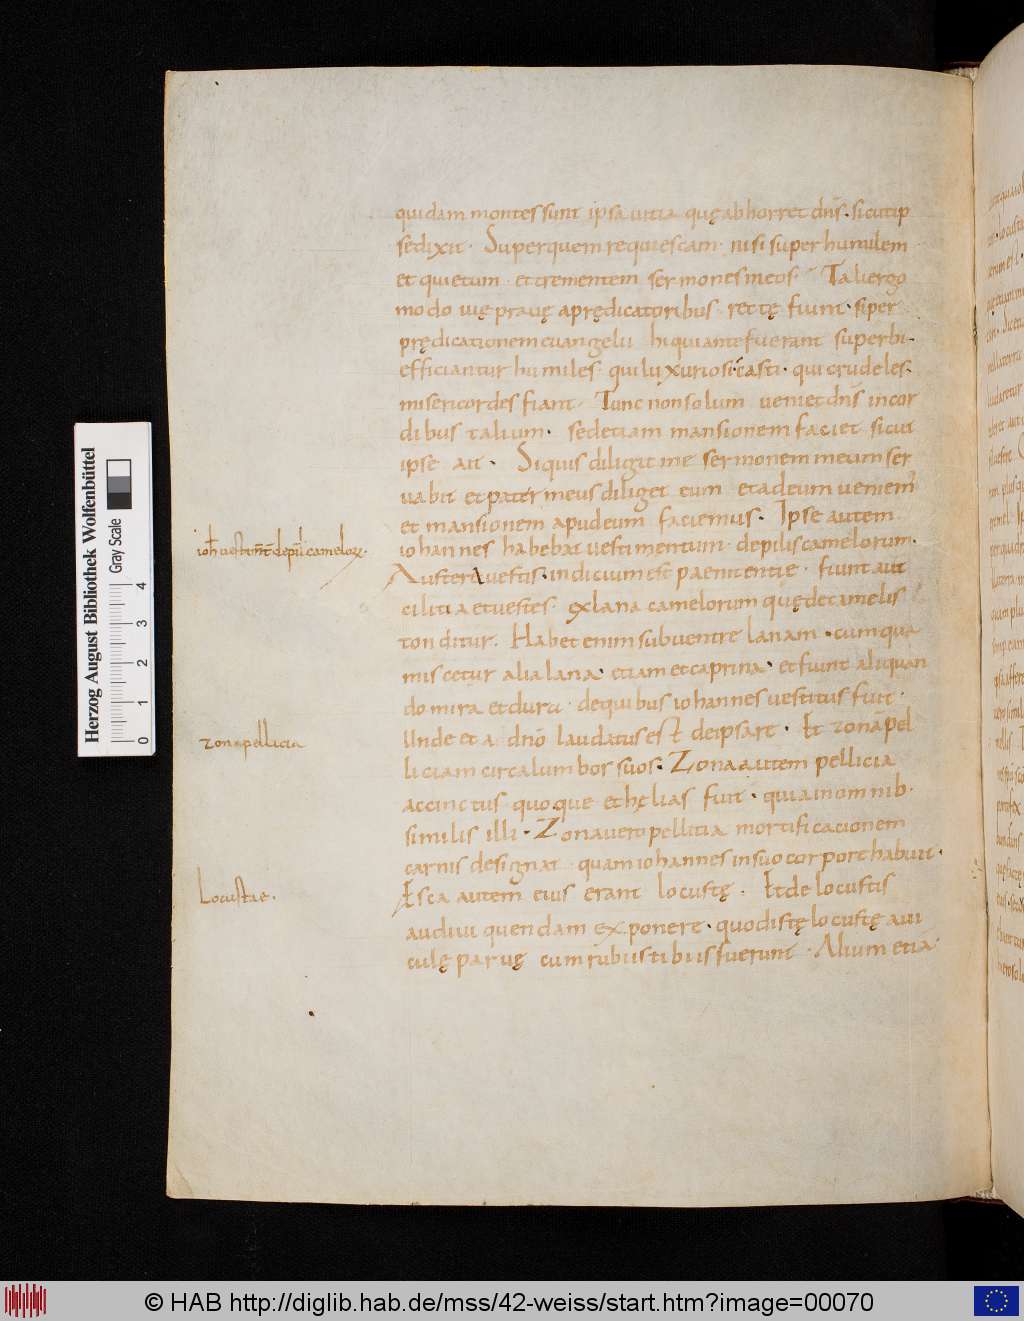 quidam montes sunt ipsa uitia quę abhorret dn̄s. sicut ip
se dixit. Super quem requiescam. nisi super humilem.
et quietum. et trementem sermones meos. Tali ergo
modo uię prauę a prędicatoribus. rectę fiunt. si per
prędicationem euangelii hi qui ante fuerant superbi.
efficiantur humiles. qui luxuriosi. casti. qui crudeles.
misericordes fiant. Tunc non solum ueniet dn̄s in cor
dibus talium. sed etiam mansionem faciet sicut
ipse ait. Siquis diligit me sermonem meum ser
uabit et pater meus diliget eum et ad eum ueniem
et mansionem apud eum faciemus. Ipse autem
iohannes habebat uestimentum. de pilis camelorum.
Austera uestis. indicium est paenitentię. fiunt aut
cilitia et uestes. ex lana camelorum quę de camelis
tonditur. Habet enim sub uentre lanam. cum qua
miscetur alia lana. etiam et caprina. et fiunt aliquan
do mira et dura. de quibus iohannes uestitus fuit.
Unde et a dn̄o laudatus est de ipsa re. Et zona pel
liciam circa lumbos suos. Zona autem pellicia
accinctus quoque et hęlias fuit. quia in omnib.
similis illi. Zona uero pellitia mortificacionem
carnis designat. quam iohannes in suo corpore habuit.
Esca autem eius erant locustę. Et de locustis
audiui quendam exponere. quod istę locustę aui
culę paruę cum rubiis tibiis fuerunt. Alium etiā
ioh̄ uestim̄t de pilis camelorꝝ.
zona pellicia
Locustae.
Herzog August Bibliothek Wolfenbüttel
Gray Scale
0 1 2 3 4
© HAB http://diglib.hab.de/mss/42-weiss/start.htm?image=00070